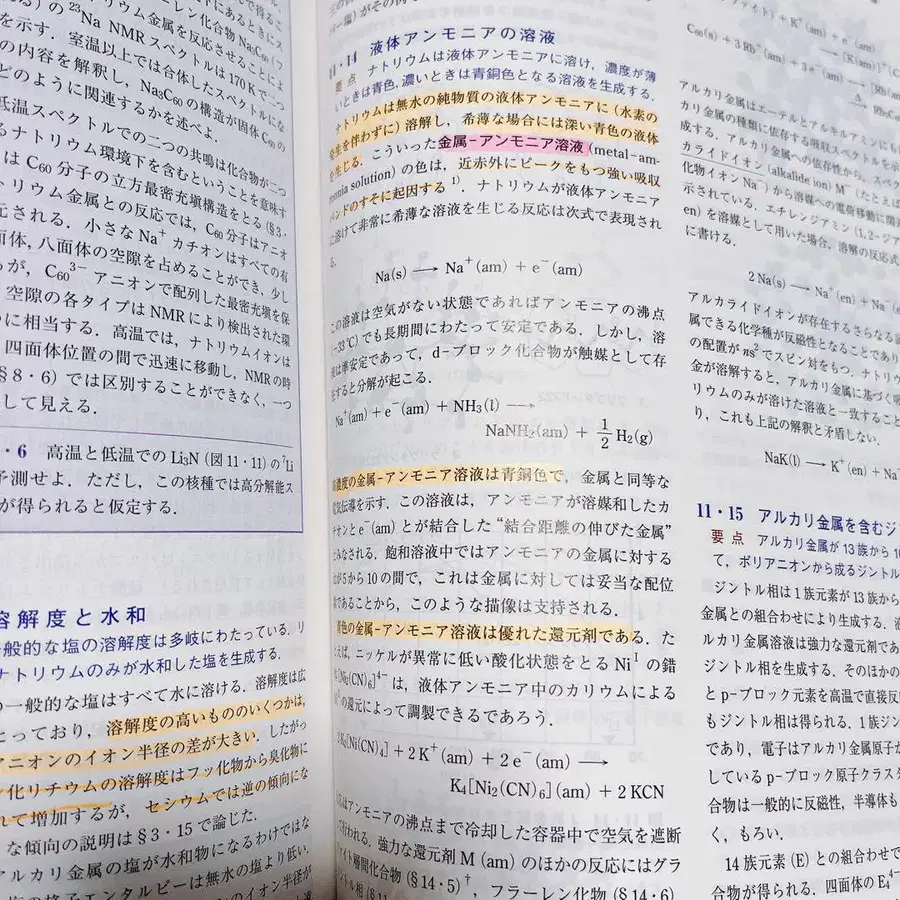 にあるときにス
ーレン化合物 Na₃C₆₀(フ
リウム金属を反応させることによ
る)の ²³Na NMR スペクトルは 170 K で二つ
を示す.室温以上では合体したスペクトルにな
の内容を解釈し,Na₃C₆₀の構造が固体C₆₀の
どのように関連するかを述べよ.
低温スペクトルでの二つの共鳴は化合物が二つ
るナトリウム環境下を含むということを意味す
は C₆₀ 分子の立方最密充填構造をとる(§3・
トリウム金属との反応では,C₆₀ 分子はアニオ
元される.小さな Na⁺ カチオンはすべての有
面体,八面体の空隙を占めることができ,少し
が,C₆₀³⁻ アニオンで配列した最密充填を保
空隙の各タイプは NMR により検出された環
に相当する.高温では,ナトリウムイオンは
四面体位置の間で迅速に移動し,NMR の時
(§8・6)では区別することができなく,一つ
して見える.
・6 高温と低温での Li₃N(図 11・11)の ⁷Li
予測せよ.ただし,この核種では高分解能ス
が得られると仮定する.
溶解度と水和
一般的な塩の溶解度は多岐にわたっている.リ
ナトリウムのみが水和した塩を生成する.
の一般的な塩はすべて水に溶ける.溶解度は広
とっており,溶解度の高いもののいくつかは,
アニオンのイオン半径の差が大きい.したがっ
化リチウムの溶解度はフッ化物から臭化物に
れて増加するが,セシウムでは逆の傾向にな
な傾向の説明は §3・15 で論じた.
アルカリ金属の塩が水和物になるわけではな
の格子エンタルピーは無水の塩より低い.
11・14 液体アンモニアの溶液
要点 ナトリウムは液体アンモニアに溶け,濃度が薄
いときは青色,濃いときは青銅色となる溶液を生成する.
ナトリウムは無水の純物質の液体アンモニアに(水素の
発生を伴わずに)溶解し,希薄な場合には深い青色の液体
を生じる.こういった金属-アンモニア溶液(metal-am-
monia solution)の色は,近赤外にピークをもつ強い吸収
バンドのすそに起因する¹⁾.ナトリウムが液体アンモニア
に溶けて非常に希薄な溶液を生じる反応は次式で表現され
る.
Na(s) ⟶ Na⁺(am) + e⁻(am)
この溶液は空気がない状態であればアンモニアの沸点
(−33℃)でも長期間にわたって安定である.しかし,溶
液は準安定であって,d-ブロック化合物が触媒として存
在すると分解が起こる.
Na⁺(am) + e⁻(am) + NH₃(l) ⟶
NaNH₂(am) + 1/2 H₂(g)
高濃度の金属-アンモニア溶液は青銅色で,金属と同等な
電気伝導を示す.この溶液は,アンモニアが溶媒和したカ
チオンと e⁻(am) とが結合した“結合距離の伸びた金属”
とみなされる.飽和溶液中ではアンモニアの金属に対する
比が 5 から 10 の間で,これは金属に対しては妥当な配位
数であることから,このような描像は支持される.
青色の金属-アンモニア溶液は優れた還元剤である.た
とえば,ニッケルが異常に低い酸化状態をとる Niᴵ の錯
[Ni₂(CN)₆]⁴⁻ は,液体アンモニア中のカリウムによる
の還元によって調製できるであろう.
2 K₂[Ni(CN)₄] + 2 K⁺(am) + 2 e⁻(am) ⟶
K₄[Ni₂(CN)₆](am) + 2 KCN
はアンモニアの沸点まで冷却した容器中で空気を遮断
て行われる.強力な還元剤 M(am) のほかの反応にはグラ
ァイト層間化合物(§14・5)†,フラーレン化物(§14・6)
C₆₀(s) + 3 Rb⁺(am) + 3 e⁻(am)
アルカリ金属はエーテルとアルキルアミンにも
カリ金属の種類に依存する吸収スペクトルを示
成する.アルカリ金属への依存性から,スペク
カライドイオン(alkalide ion) M⁻(たとえば
化物イオン Na⁻)から溶媒への電荷移動に関
示されている.エチレンジアミン(1,2-ジア
en)を溶媒として用いた場合,溶解の反応式
に書ける.
2 Na(s) ⟶ Na⁺(en) + Na⁻(e
アルカライドイオンが存在するさらなる証
属できる化学種が反磁性となることであり
の配置が ns² でスピン対をもつ.ナトリウ
金が溶解すると,アルカリ金属に基づく吸
リウムのみが溶けた溶液と一致すること
り,これも上記の解釈と矛盾しない.
NaK(l) ⟶ K⁺(en) + Na
11・15 アルカリ金属を含むジ
要点 アルカリ金属が 13 族から 1
て,ポリアニオンから成るジントル
ジントル相は 1 族元素が 13 族から
金属との組合わせにより生成する.液
ルカリ金属溶液は強力な還元剤であ
ジントル相を生成する.そのほかの
と p-ブロック元素を高温で直接反
もジントル相は得られる.1 族ジン
であり,電子はアルカリ金属原子か
している p-ブロック原子クラスタ
合物は一般的に反磁性,半導体も
く,もろい.
14 族元素 (E) との組合わせで
合物が得られる.四面体の E₄⁴⁻